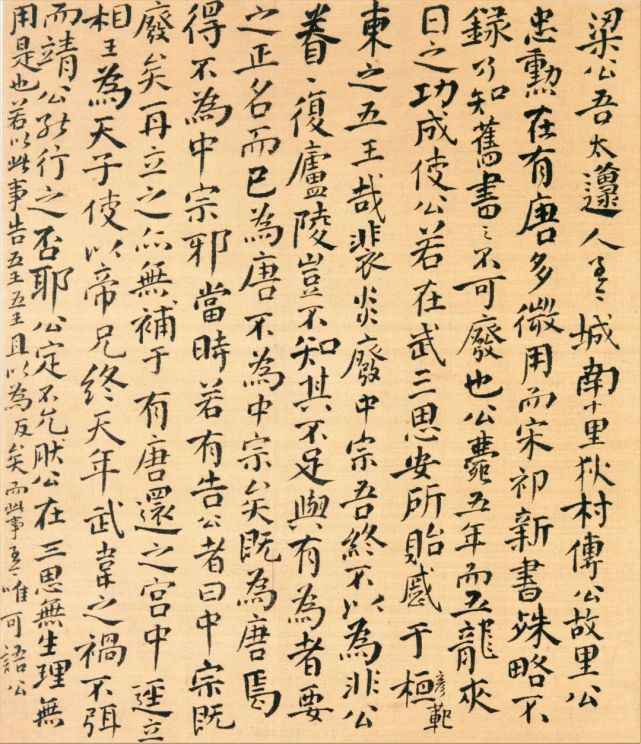 梁公吾太邍人去城南十里狄村傳公故里公
忠勳在有唐多微用而宋祁新書殊略不
錄乃知舊書之不可廢也公薨五年而五龍夾
日之功成使公若在武三思安所貽感于桓彥範
東之五王哉裴炎廢中宗吾終不以為非公
眷眷復廬陵豈不知其不足與有為者要
之正名而已為唐不為中宗矣既為唐焉
得不為中宗邪當時若有告公者曰中宗既
廢矣再立之亦無補于有唐還之宮中逕立
相王為天子使以帝兄終天年武韋之禍不弭
而靖公能行之否耶公定不允肰公在三思無生理無
用是也若以此事告五王五王且以為反矣而此事唯可語公